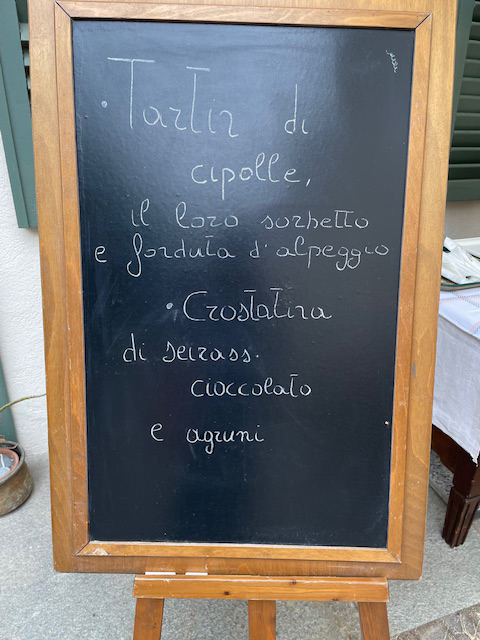 • Tartin di
cipolle,
il loro sorbetto
e fonduta d'alpeggio
• Crostatina
di seirass.
cioccolato
e agrumi